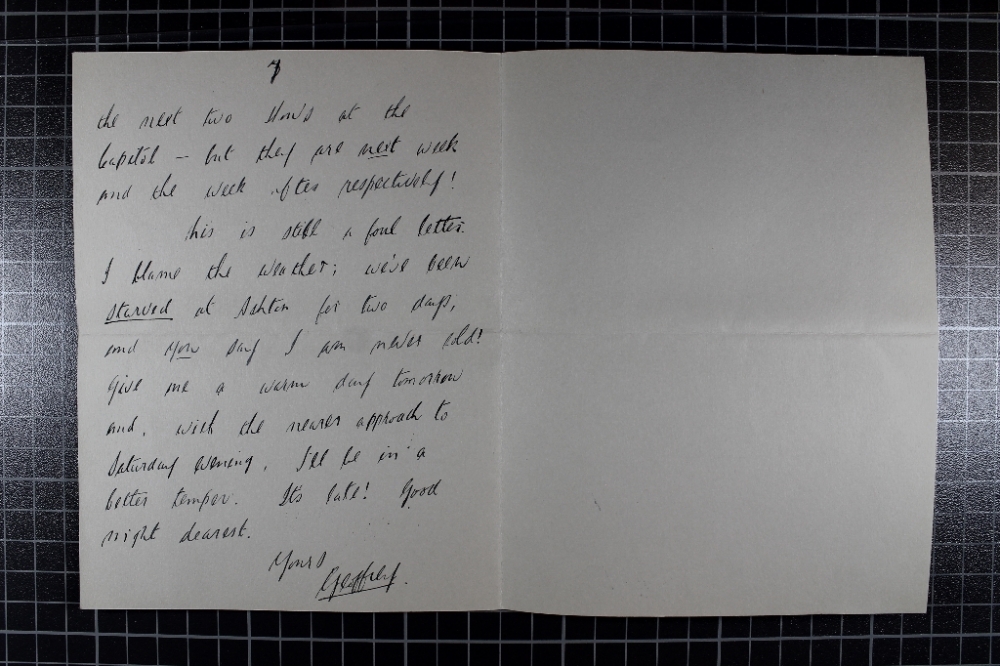 7
the next two shows at the
Capitol – but they are next week
and the week after respectively!
This is still a foul letter.
I blame the weather; we've been
starved at Ashton for two days;
and you say I am never cold!
Give me a warm day tomorrow
and, with the nearer approach to
Saturday evening, I'll be in a
better temper. It's late! Good
night dearest.
Yours
Geoffrey.